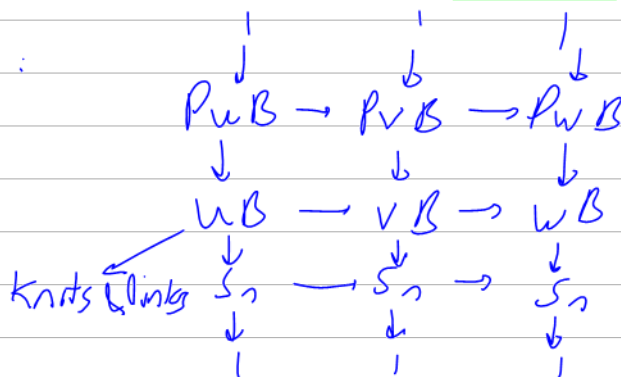 1 1 1
PuB → PvB → PwB
uB → vB → wB
Knots & links Sn → Sn → Sn
1 1 1